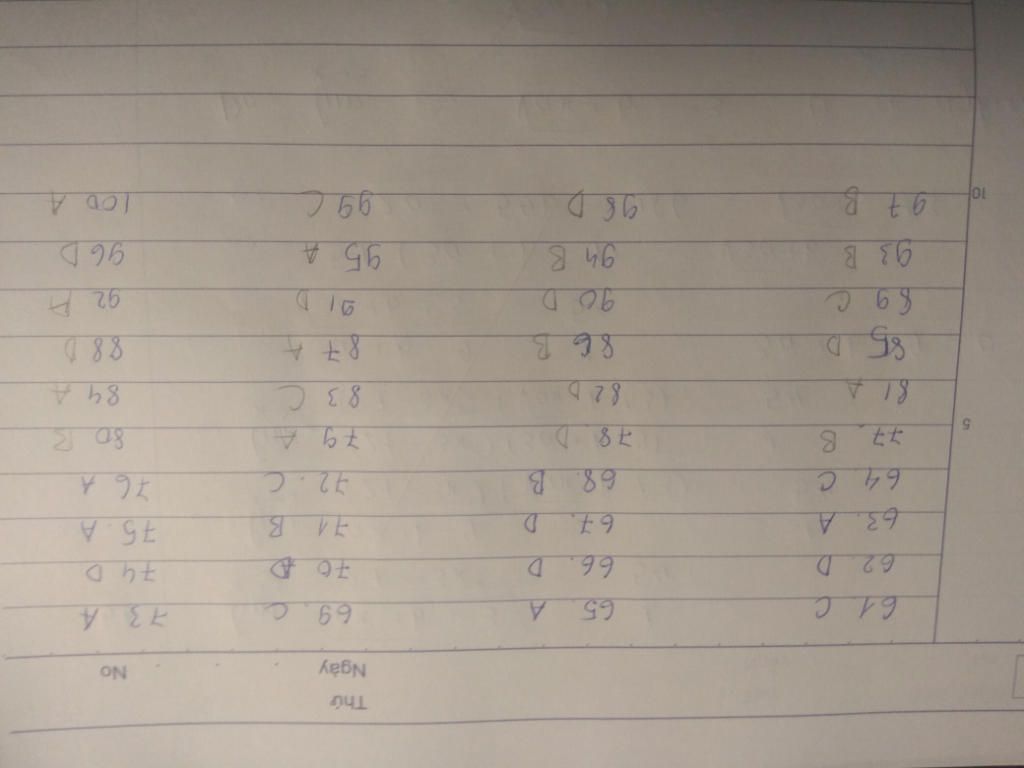 Thứ
Ngày No
61. C 65. A 69. C 73. A
62. D 66. D 70 D 74 D
63. A 67. D 71 B 75. A
64. C 68. B 72. C 76 A
5
77. B 78. D 79 A 80 B
81 A 82 D 83 C 84 A
85 D 86 B 87 A 88 D
89 C 90 D 91 D 92 A
93 B 94 B 95 A 96 D
10
97 B 98 D 99 C 100 A